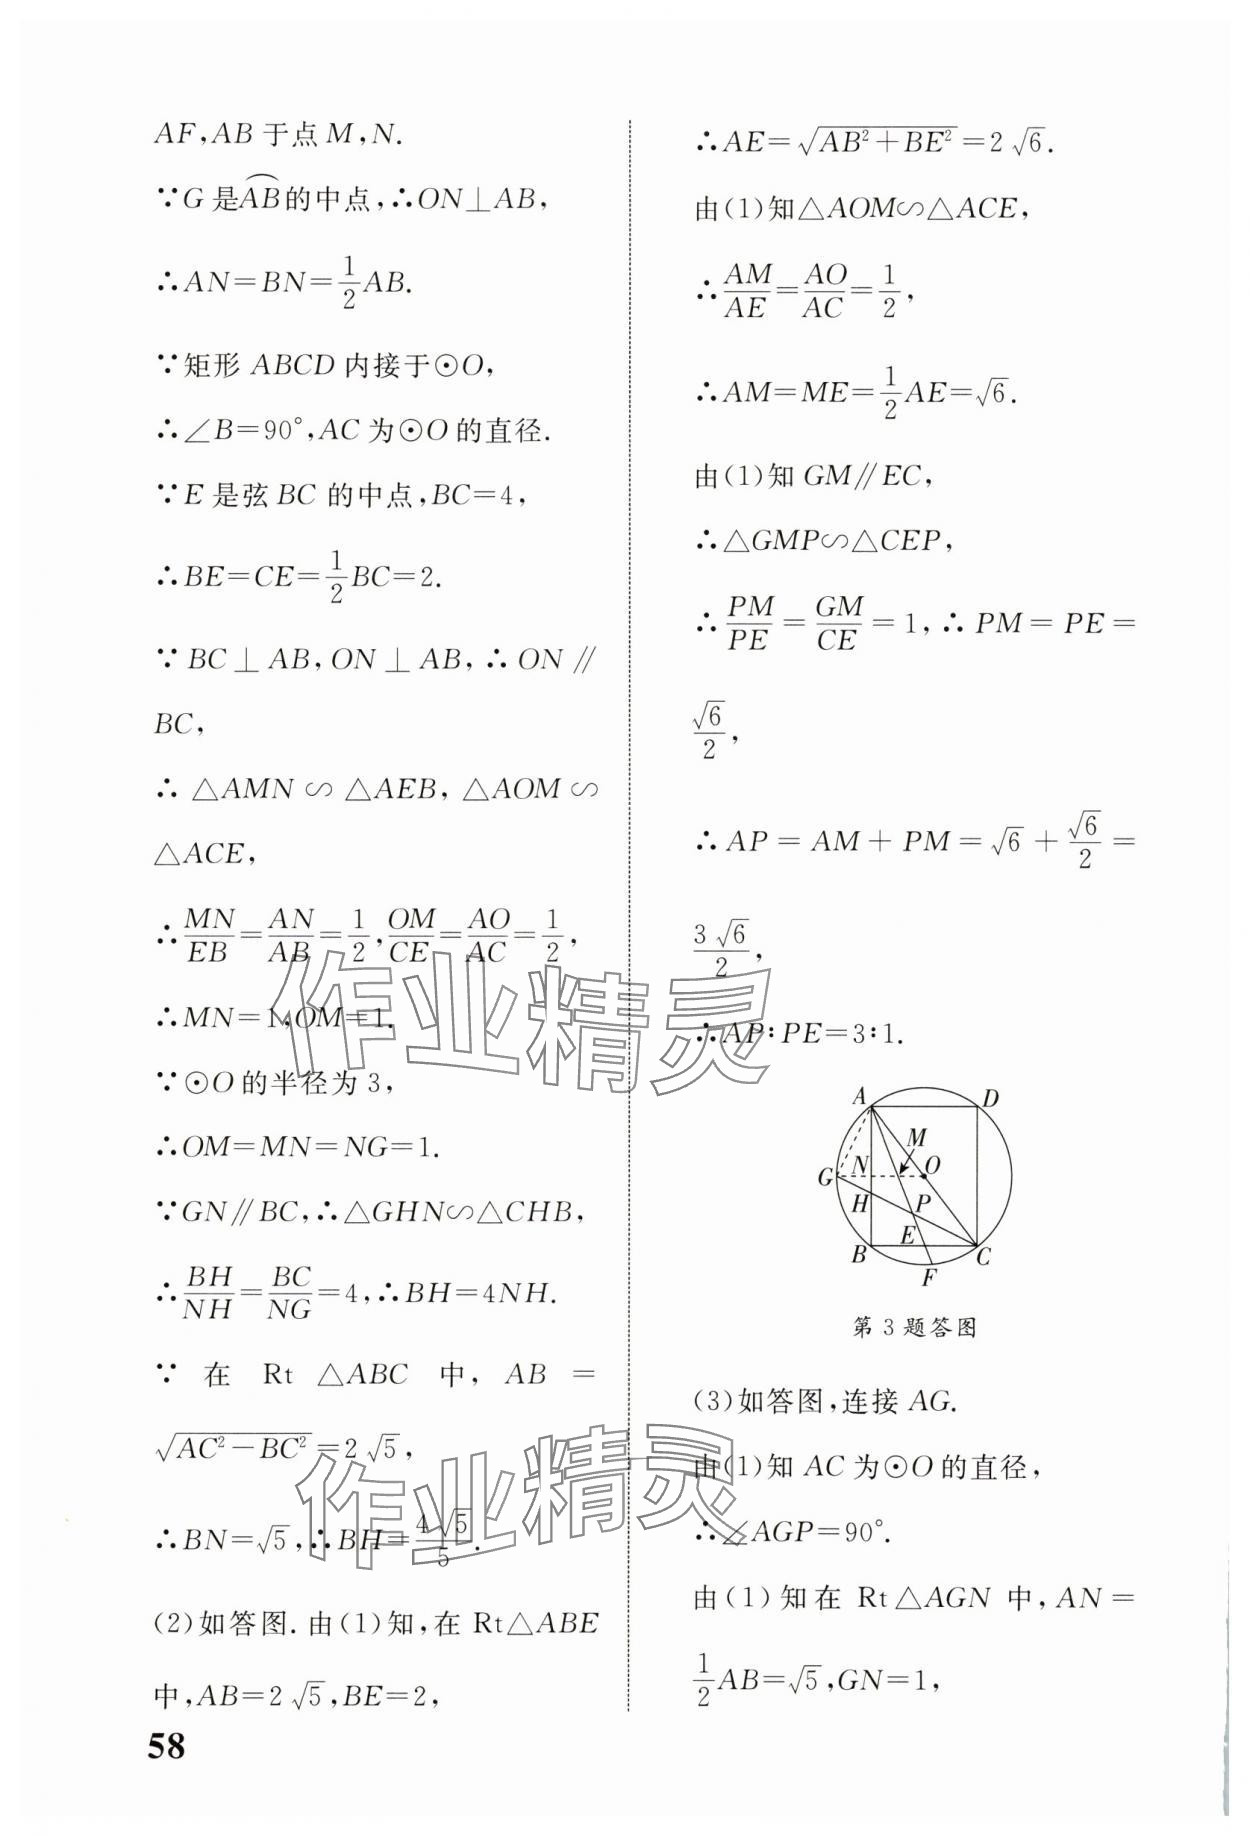 AF,AB 于点 M,N.
∵G 是\overset{\frown}{AB}的中点,∴ON⊥AB,
∴AN=BN=\frac{1}{2}AB.
∵矩形 ABCD 内接于⊙O,
∴∠B=90°,AC 为⊙O 的直径.
∵E 是弦 BC 的中点,BC=4,
∴BE=CE=\frac{1}{2}BC=2.
∵BC⊥AB,ON⊥AB,∴ON∥
BC,
∴△AMN∽△AEB,△AOM∽
△ACE,
∴\frac{MN}{EB}=\frac{AN}{AB}=\frac{1}{2},\frac{OM}{CE}=\frac{AO}{AC}=\frac{1}{2},
∴MN=1,OM=1.
∵⊙O 的半径为 3,
∴OM=MN=NG=1.
∵GN∥BC,∴△GHN∽△CHB,
∴\frac{BH}{NH}=\frac{BC}{NG}=4,∴BH=4NH.
∵ 在 Rt △ABC 中, AB =
\sqrt{AC²-BC²}=2\sqrt{5},
∴BN=\sqrt{5},∴BH=\frac{4\sqrt{5}}{5}.
(2)如答图.由(1)知,在 Rt△ABE
中,AB=2\sqrt{5},BE=2,
58
∴AE=\sqrt{AB²+BE²}=2\sqrt{6}.
由(1)知△AOM∽△ACE,
∴\frac{AM}{AE}=\frac{AO}{AC}=\frac{1}{2},
∴AM=ME=\frac{1}{2}AE=\sqrt{6}.
由(1)知 GM∥EC,
∴△GMP∽△CEP,
∴\frac{PM}{PE}=\frac{GM}{CE}=1,∴PM=PE=
\frac{\sqrt{6}}{2},
∴AP=AM+PM=\sqrt{6}+\frac{\sqrt{6}}{2}=
\frac{3\sqrt{6}}{2},
∴AP∶PE=3∶1.
A D
M
G N O
H P
B E C
F
第 3 题答图
(3)如答图,连接 AG.
由(1)知 AC 为⊙O 的直径,
∴∠AGP=90°.
由(1)知在 Rt△AGN 中,AN=
\frac{1}{2}AB=\sqrt{5},GN=1,
作业精灵
作业精灵